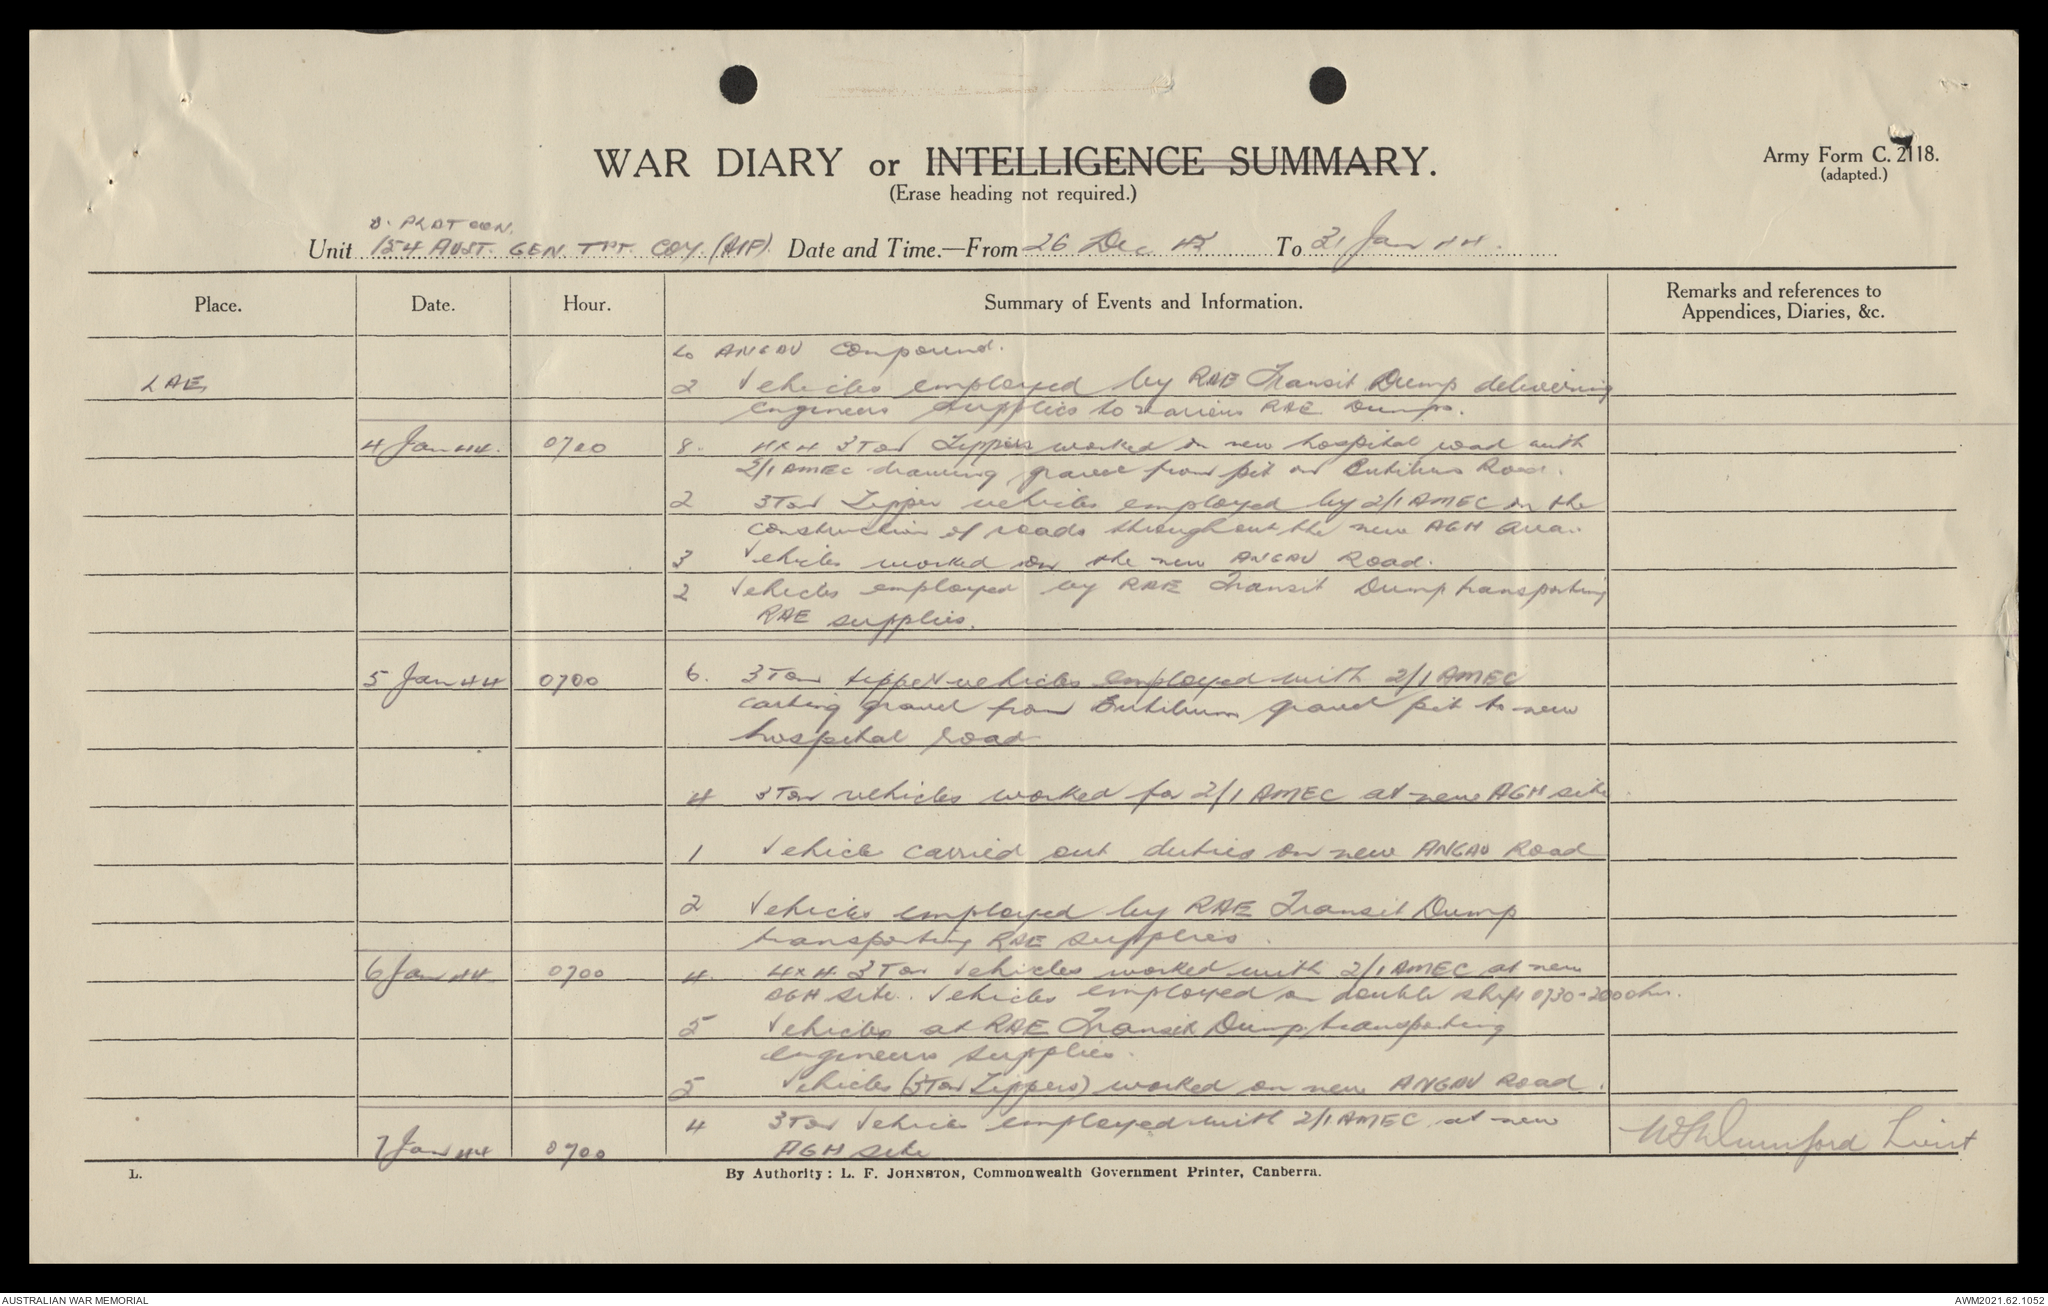 WAR DIARY or INTELLIGENCE SUMMARY.
(Erase heading not required.)
Army Form C. 2118.
(adapted.)
D. PLATOON.
Unit 154 AUST. GEN. TPT. COY. (AIF). Date and Time.—From 26 Dec 43 To 31 Jan 44.
Place. Date. Hour. Summary of Events and Information. Remarks and references to Appendices, Diaries, &c.
to ANGAU Compound.
LAE, 2 Vehicles employed by RAE Transit Dump delivering
engineers supplies to various RAE Dumps.
4 Jan 44. 0700 8. 4x4 3 Ton Tippers worked on new hospital road with
2/1 AMEC drawing gravel from pit on Butibum Road.
2 3 Ton Tipper vehicles employed by 2/1 AMEC in the
construction of roads throughout the new AGH area.
3 Vehicles worked on the new ANGAU Road.
2 Vehicles employed by RAE Transit Dump transporting
RAE supplies.
5 Jan 44 0700 6. 3 Ton tipper vehicles employed with 2/1 AMEC
carting gravel from Butibum gravel pit to new
hospital road
4 3 Ton vehicles worked for 2/1 AMEC at new AGH site.
1 Vehicle carried out duties on new ANGAU Road
2 Vehicles employed by RAE Transit Dump
transporting RAE supplies.
6 Jan 44 0700 4. 4x4 3 Ton Vehicles worked with 2/1 AMEC at new
AGH site. Vehicles employed on double shift 0730-2000 hrs.
5 Vehicles at RAE Transit Dump transporting
engineers supplies.
5 Vehicles (3 Ton Tippers) worked on new ANGAU Road.
4 3 Ton Vehicles employed with 2/1 AMEC at new
7 Jan 44 0700 AGH site
Lieut
L. By Authority: L. F. JOHNSTON, Commonwealth Government Printer, Canberra.
AUSTRALIAN WAR MEMORIAL
AWM2021.62.1052